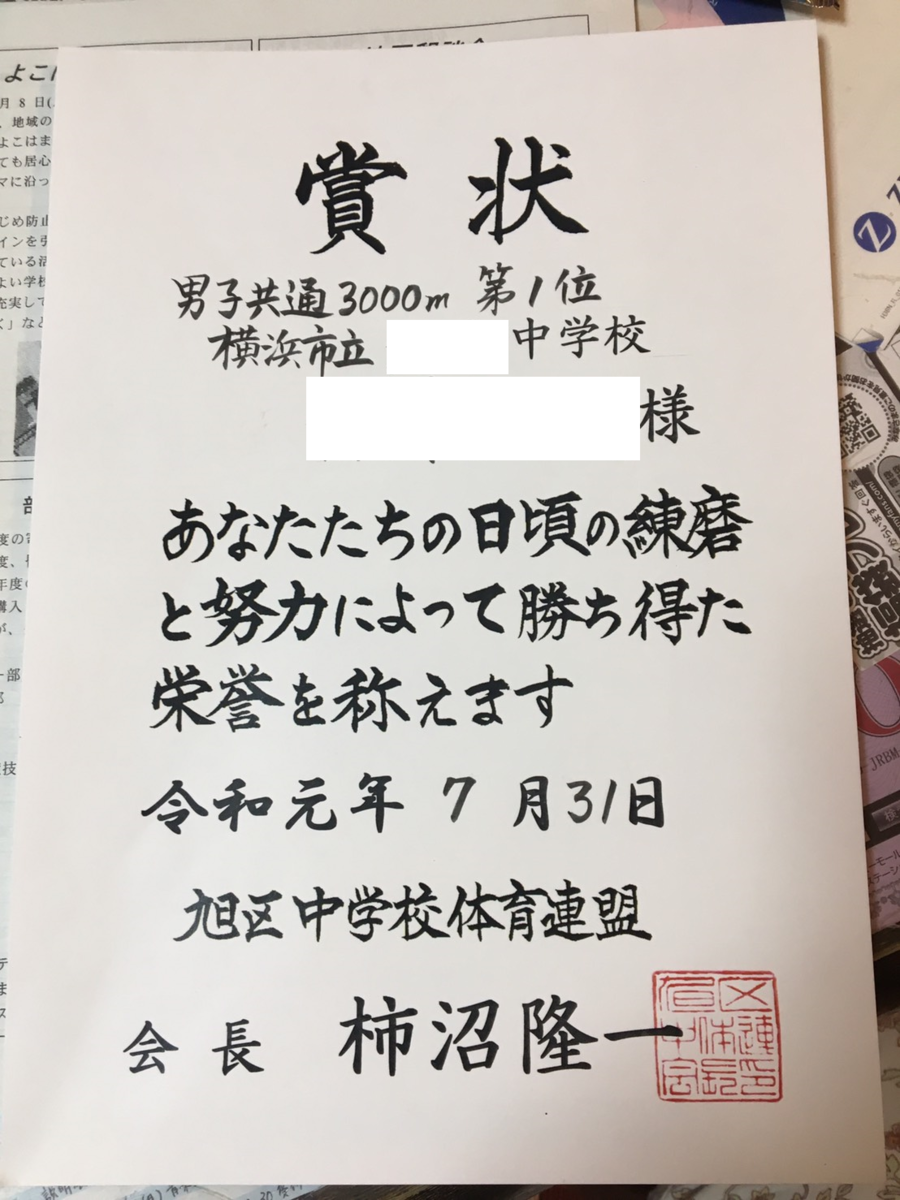 賞状
男子共通3000m 第1位
横浜市立 中学校
様
あなたたちの日頃の練磨
と努力によって勝ち得た
栄誉を称えます
令和元年 7 月31日
旭区中学校体育連盟
会長 柿沼隆一